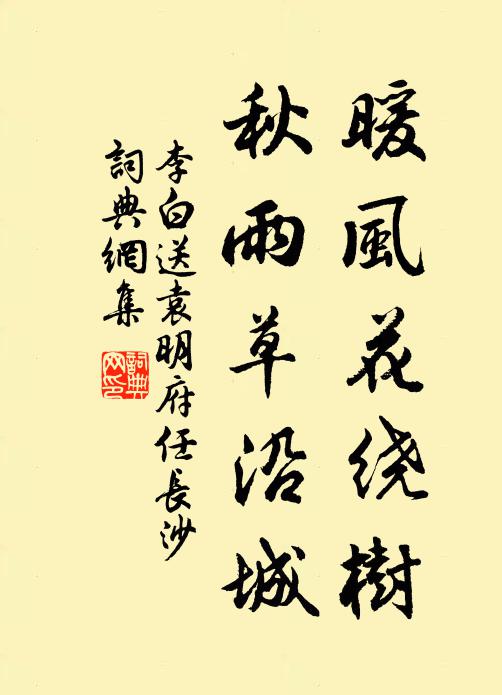 暖風花绕樹
秋雨草沿城
李白送袁明府任長沙
詞典網集
詞典网印